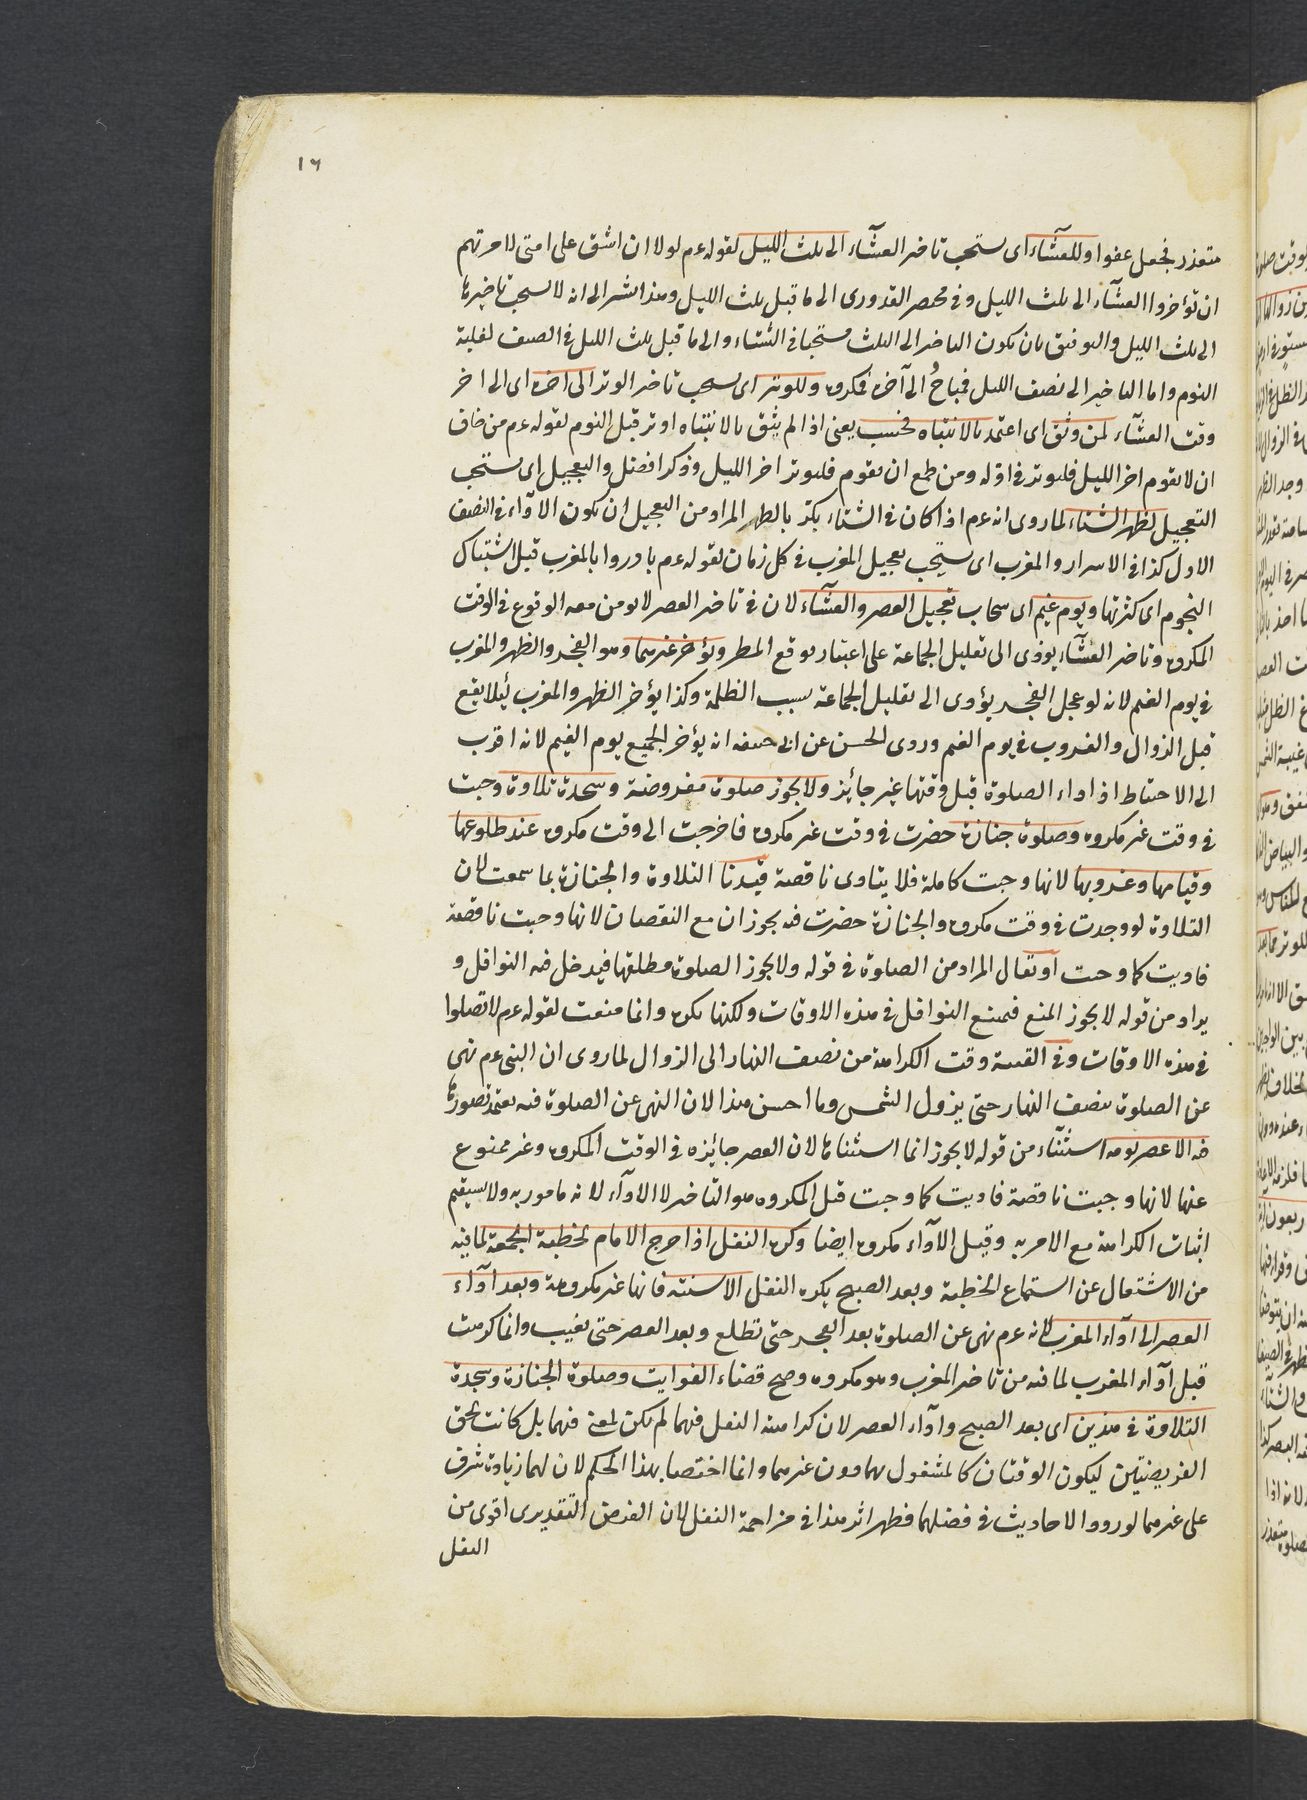 ١٦
متعذر فجعل عفوا وللعشآء اى يستحب تاخير العشآء الى ثلث الليل لقوله عم لولا ان اشق على امتى لامرتهم
ان تؤخروا العشآء الى ثلث الليل وفى مختصر القدورى الى ما قبل ثلث الليل وهذا يشير الى انه لا يستحب تاخيرها
الى ثلث الليل والتوفيق بان يكون التاخير الى الثلث مستحبا فى الشتاء والى ما قبل ثلث الليل فى الصيف لغلبة
النوم واما التاخير الى نصف الليل فمباح الى آخره فمكروه وللوتر اى يستحب تاخير الوتر الى اخره اى الى اخر
وقت العشآء لمن وثق اى اعتمد بالانتباه فحسب يعنى اذا لم يثق بالانتباه اوتر قبل النوم لقوله عم من خاف
ان لا يقوم اخر الليل فليوتر فى اوّله ومن طمع ان يقوم فليوتر اخر الليل وذكر افضل والتعجيل اى يستحب
التعجيل لظهر الشتاء لما روى انه عم اذا كان فى الشتاء بكّر بالظهر المراد من التعجيل ان يكون الاداء فى النصف
الاول كذا فى الاسرار والمغرب اى يستحب تعجيل المغرب فى كل زمان لقوله عم بادروا بالمغرب قبل اشتباك
النجوم اى كثرتها ويوم غيم اى سحاب تعجيل العصر والعشآء لان فى تاخير العصر لا يومن معه الوقوع فى الوقت
المكروه وتاخير العشآء يؤدى الى تقليل الجماعة على اعتبار توقع المطر ويؤخر غيرهما وهو الفجر والظهر والمغرب
فى يوم الغيم لانه لو عجل الفجر يؤدى الى تقليل الجماعة بسبب الظلمة وكذا يؤخر الظهر والمغرب لئلا يقع
قبل الزوال والغروب فى يوم الغيم وروى الحسن عن ابى حنيفه انه يؤخر الجميع يوم الغيم لانه اقرب
الى الاحتياط اذ اداء الصلوة قبل وقتها غير جائز ولا يجوز صلوة مفروضة وسجدة تلاوة وجبت
فى وقت غير مكروه وصلوة جنازة حضرت فى وقت غير مكروه فاخرجت الى وقت مكروه عند طلوعها
وقيامها وغروبها لانها وجبت كاملة فلا يتادى ناقصة قيدنا التلاوة والجنازة بما سمعت لان
التلاوة لو وجدت فى وقت مكروه والجنازة حضرت فيه يجوزان مع النقصان لانها وجبت ناقصة
فاديت كما وجبت او يقال المراد من الصلوة فى قوله ولا يجوز الصلوة مطلقها فيدخل فيه النوافل و
يراد من قوله لا يجوز المنع فيمنع النوافل فى هذه الاوقات ولكنها يكره وانما منعت لقوله عم لا تصلوا
فى هذه الاوقات وفى القنية وقت الكراهة من نصف النهار الى الزوال لما روى ان النبى عم نهى
عن الصلوة بنصف النهار حتى يزول الشمس وما احسن هذا لان النهى عن الصلوة فيه يعتمد تصورها
فيه الا عصر يومه استثنآء من قوله لا يجوز انما استثناها لان العصر جائزه فى الوقت المكروه وغير ممنوع
عنها لانها وجبت ناقصة فاديت كما وجبت قيل المكروه هو التاخير لا الاداء لانه مامور به ولا يستقيم
اثبات الكراهة مع الامر به وقيل الاداء مكروه ايضا وكره النفل اذا خرج الامام لخطبة الجمعة لما فيه
من الاشتغال عن استماع الخطبة وبعد الصبح يكره النفل الا سنته فانها غير مكروهة وبعد ادآء
العصر الى آداء المغرب لانه عم نهى عن الصلوة بعد الفجر حتى تطلع وبعد العصر حتى تغيب وانما كرهت
قبل آداء المغرب لما فيه من تاخير المغرب وهو مكروه وصح قضاء الفوايت وصلوة الجنازة وسجدة
التلاوة فى هذين اى بعد الصبح وآداء العصر لان كراهة النفل فيهما لم يكن لمعنى فيهما بل كانت لحق
الفريضتين ليكون الوقتان كالمشغول بهما دون غيرهما وانما اختصا بهذا الحكم لان لهما زيادة شرف
على غيرهما لورود الاحاديث فى فضلهما فظهر اثر هذا فى مزاحمة النفل لان الفرض التقديرى اقوى من
النفل